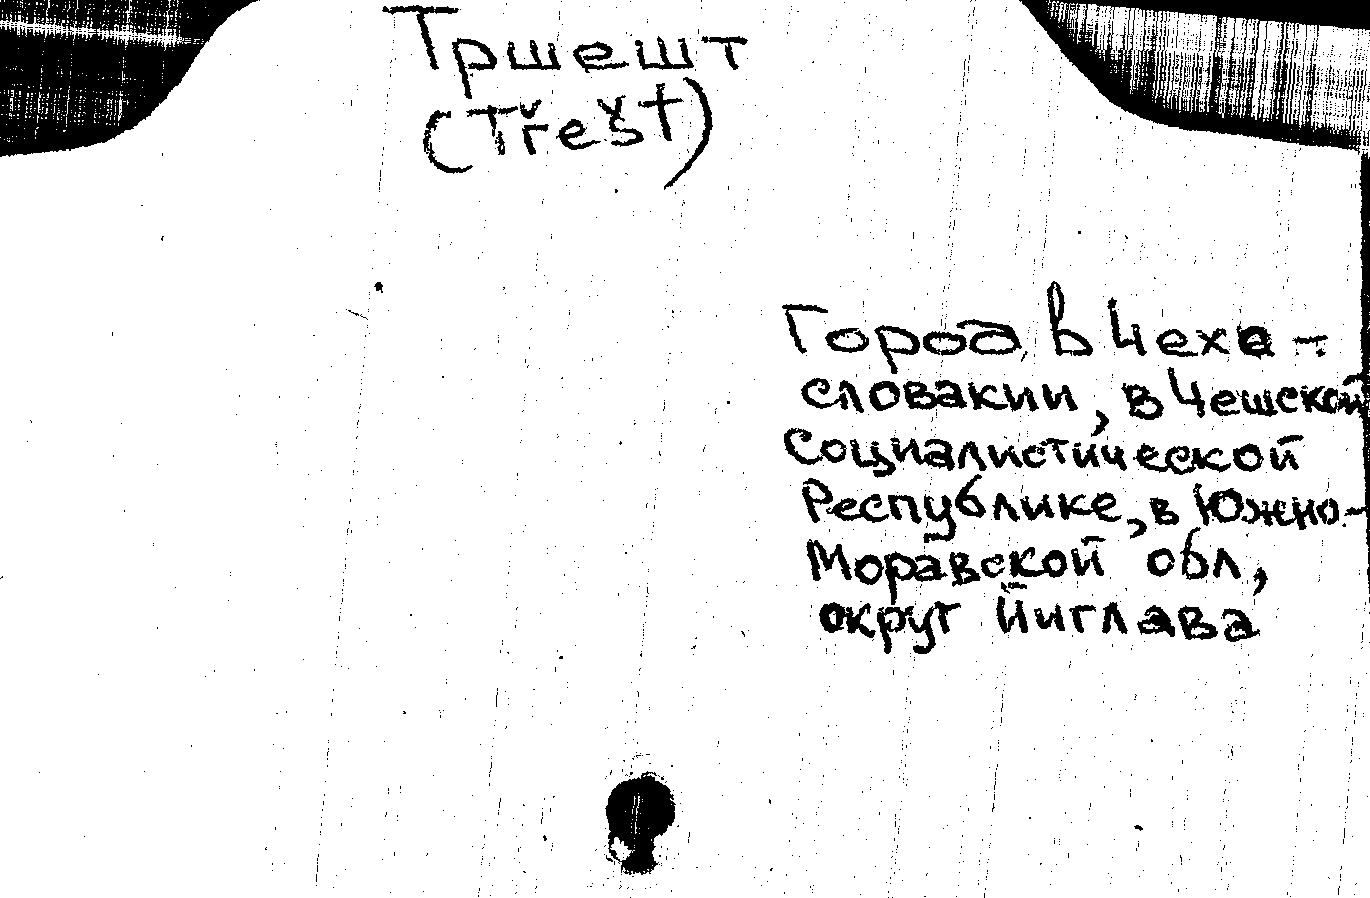 Тршешт
(Třešt)
Город в Чехо-
словакии, в Чешской
Социалистической
Республике, в Южно-
Моравской обл,
округ Йиглава